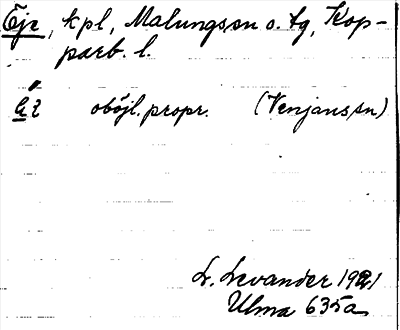 Ejz, kpl, Malungs sn o. tg, Kop-
parb. l.
oböjl. propr. (Venjans sn)
L. Levander 1921
Ulma 635a